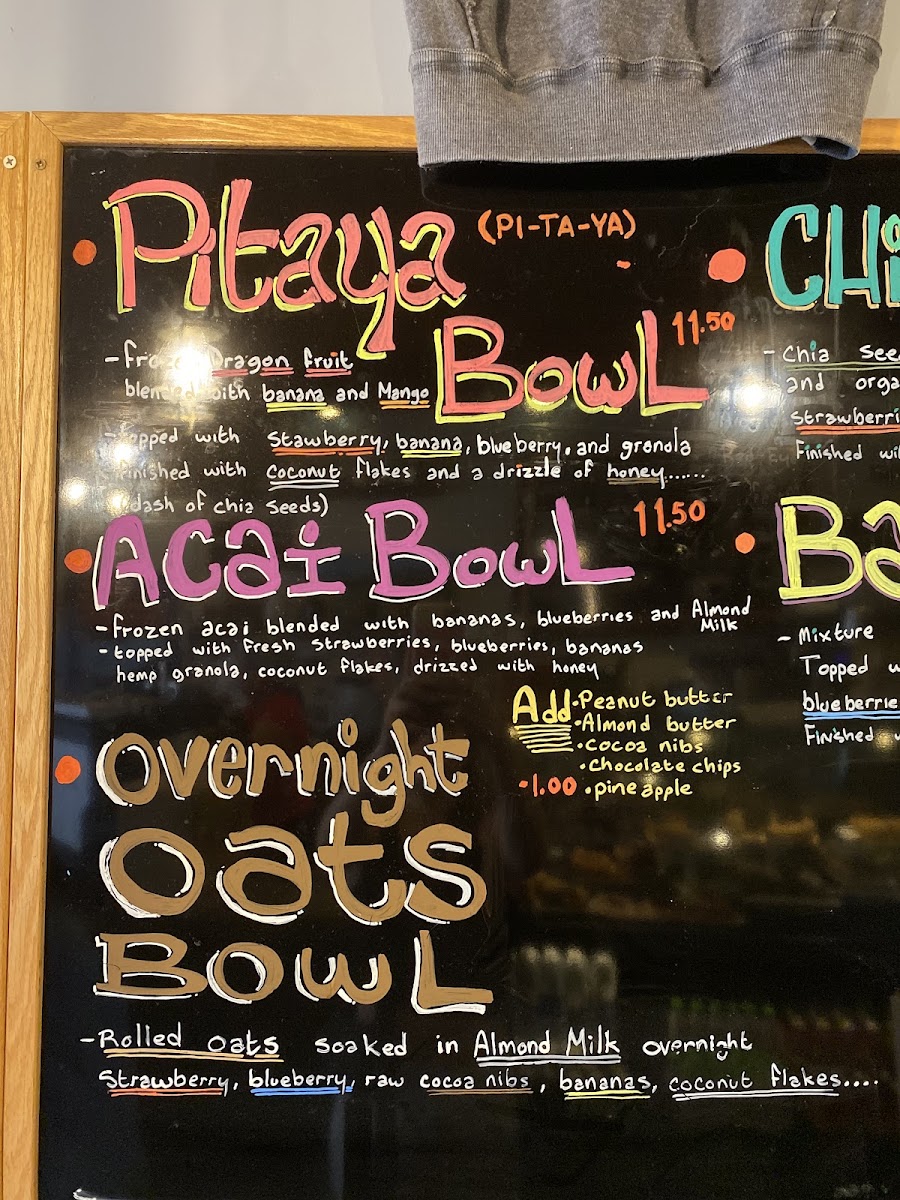 Pitaya (PI-TA-YA)
BowL 11.50
- frozen Dragon fruit
blended with banana and Mango
- topped with Stawberry, banana, blueberry, and granola
finished with coconut flakes and a drizzle of honey......
(dash of chia seeds)
Acai BowL 11.50
- frozen acai blended with bananas, blueberries and Almond Milk
- topped with fresh strawberries, blueberries, bananas
hemp granola, coconut flakes, drizzed with honey
Add • Peanut butter
• Almond butter
• cocoa nibs
• chocolate chips
-1.00 • pineapple
overnight
oats
BowL
- Rolled oats soaked in Almond Milk overnight
Strawberry, blueberry, raw cocoa nibs, bananas, coconut flakes....
CHi
- chia see
and orga
strawberri
Finished wi
Ba
- Mixture
Topped w
blueberrie
Finished w